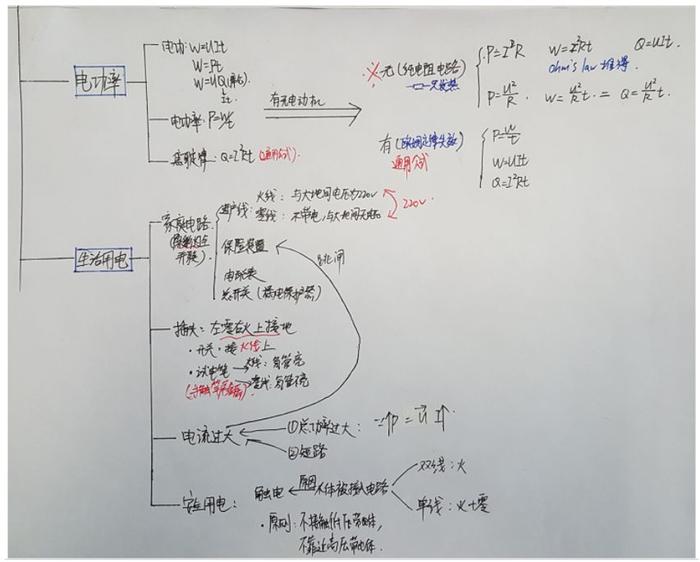 电功率
电功: W=UIt
W=Pt
W=UQ
It
电功率: P=W/t
焦耳定律: Q=I²Rt (通用公式)
有无电动机
※无(纯电阻电路)
P=I²R W=I²Rt Q=UIt.
ohm's law 推得.
P=U²/R. W=U²/R t. = Q=U²/R t.
有(欧姆定律失效)
通用公式
P=W/t
W=UIt
Q=I²Rt
生活用电
家庭电路
进户线:
火线: 与大地间电压为220V
零线: 不带电,与大地间无电压
220V
保险装置
电能表
总开关(漏电保护器)
跳闸
插头: 左零右火上接地
·开关·接火线上
·试电笔
火线: 氖管亮
零线: 氖管不亮
电流过大
①总功率过大: ∵↑P=U I↑.
②短路
安全用电:
触电
原因
人体被接入电路
双线: 火
单线: 火+零
·原则: 不接触低压带电体,
不靠近高压带电体.